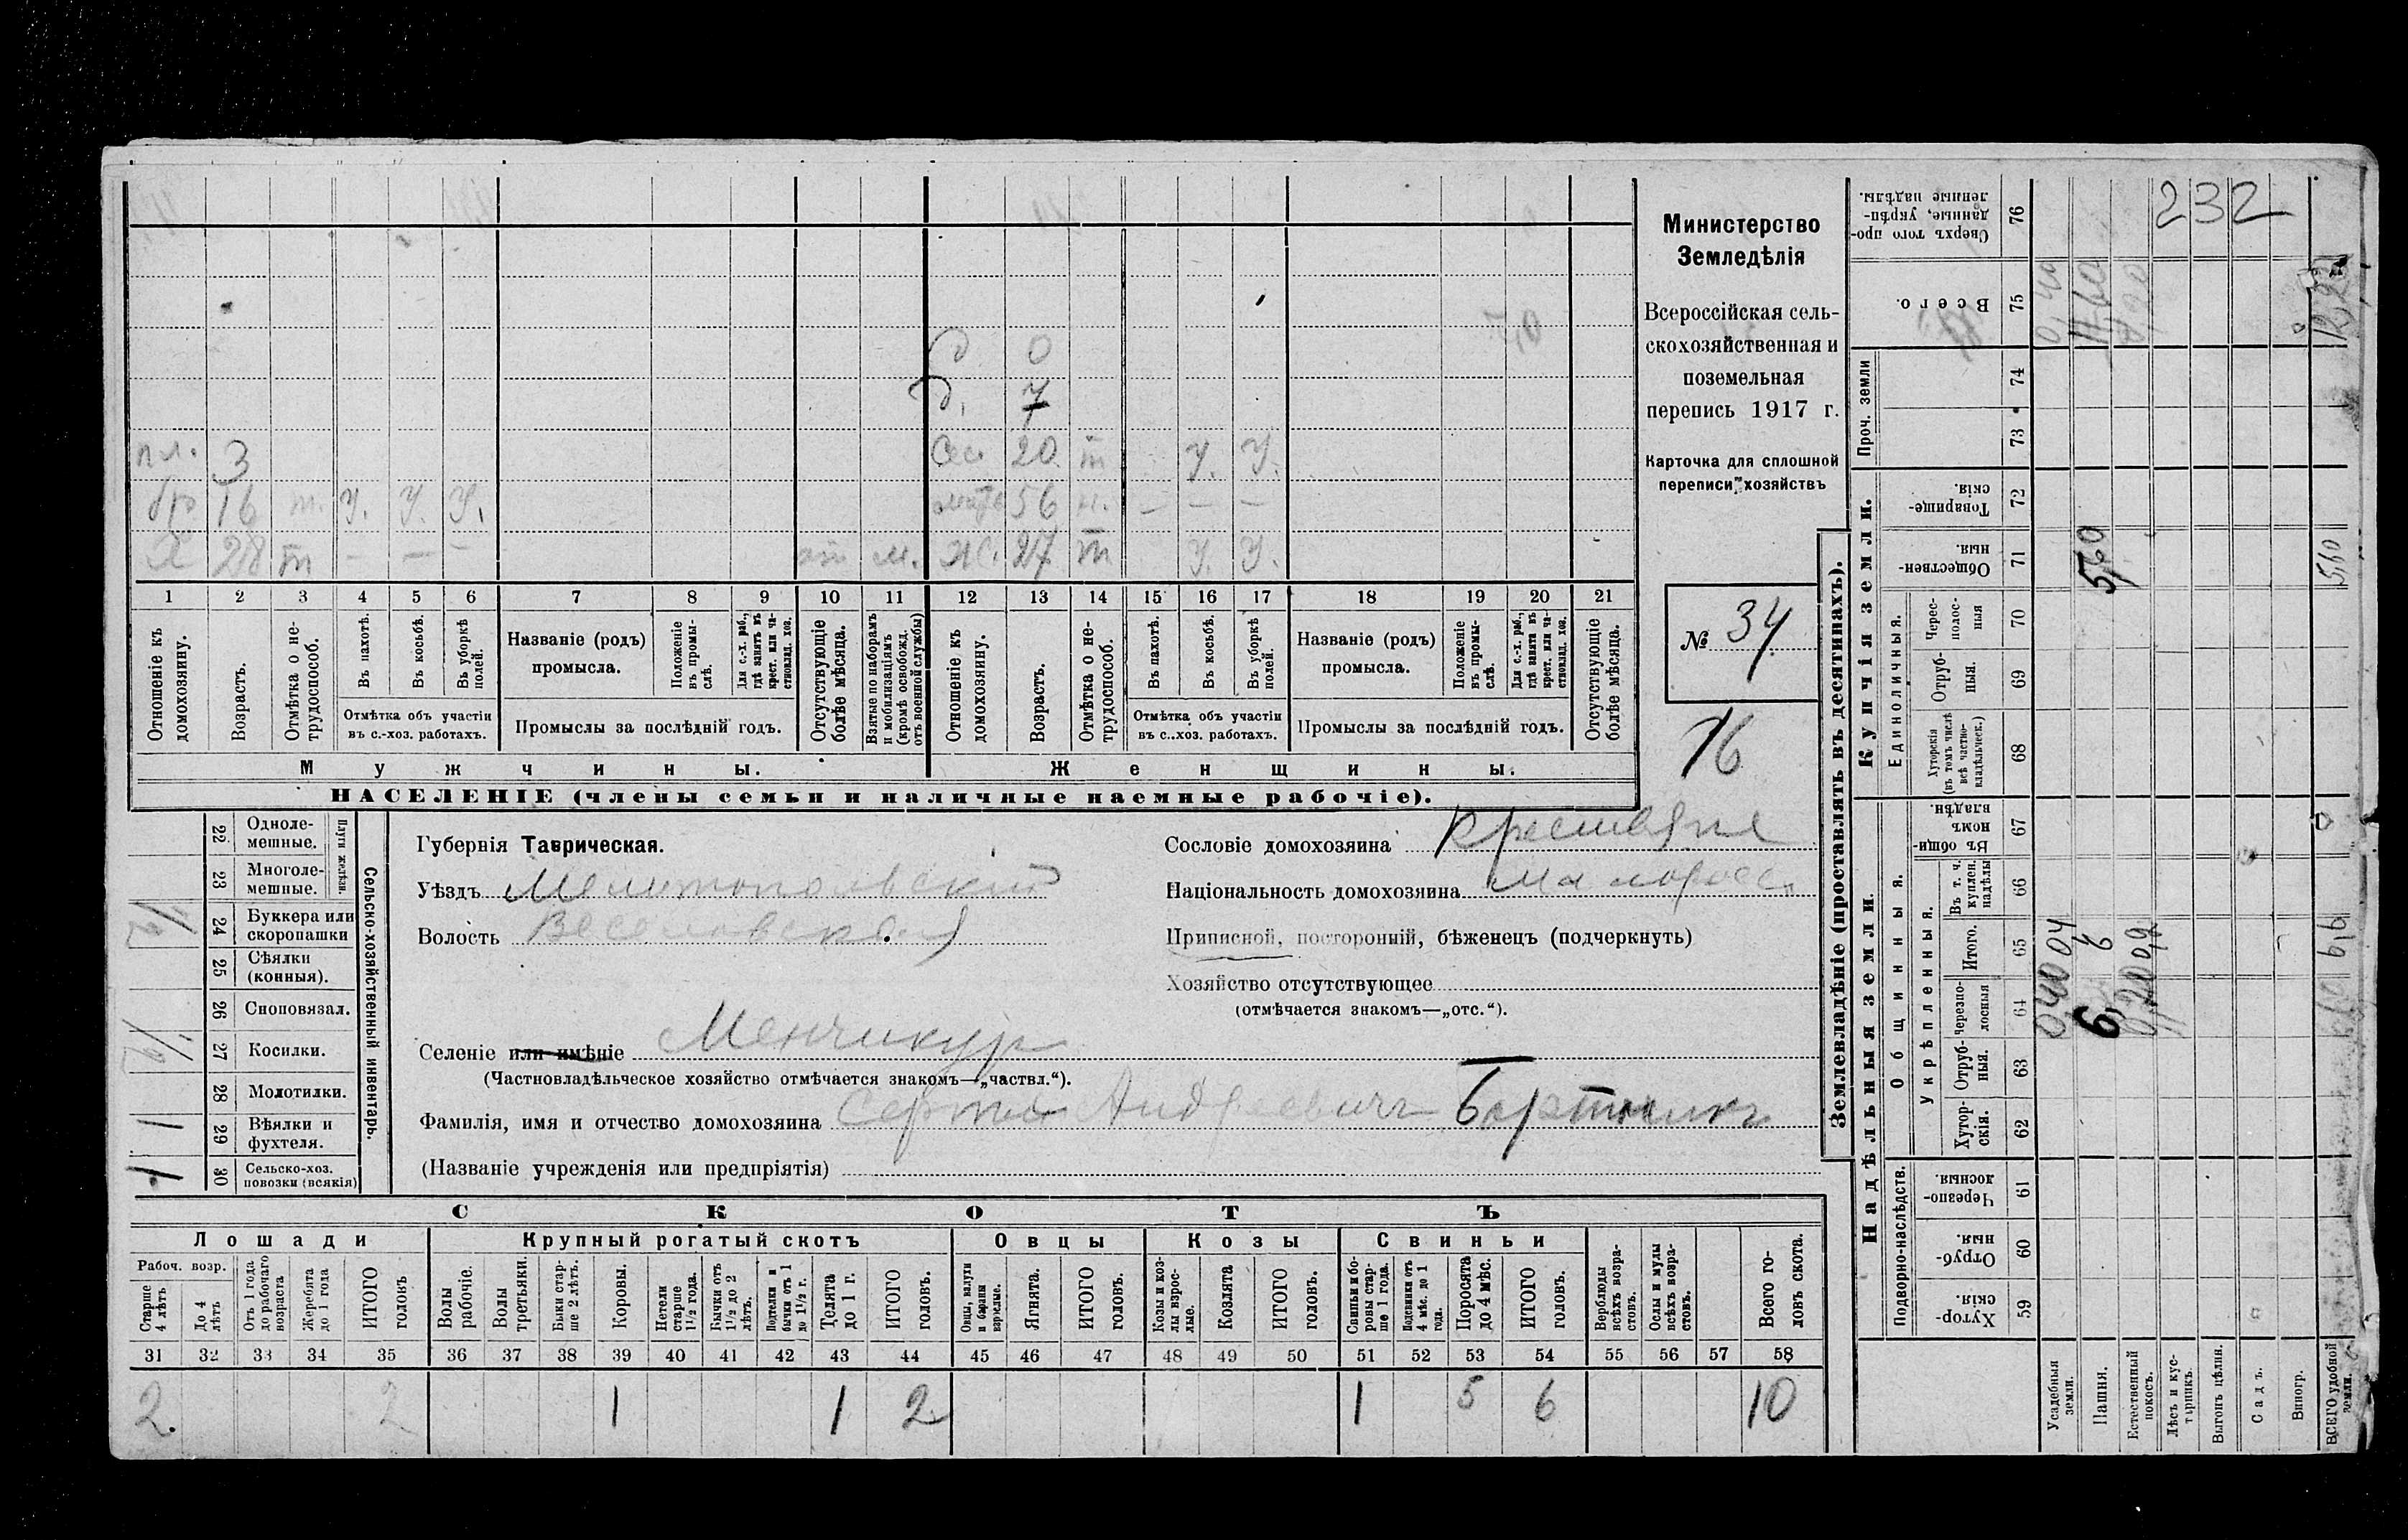 д 0
д. 7
пл. 3 сес. 20 т У. У.
бр 16 т. У. У. У. мать 56 н. — — —
х 28 т — — — от м. ж. 27 т У. У.
1 2 3 4 5 6 7 8 9 10 11 12 13 14 15 16 17 18 19 20 21
Отношеніе къ домохозяину.
Возрастъ.
Отмѣтка о нетрудоспособ.
Въ пахотѣ.
Въ косьбѣ.
Въ уборкѣ полей.
Отмѣтка объ участіи въ с.-хоз. работахъ.
Названіе (родъ) промысла.
Положеніе въ промыслѣ.
Для с.-х. раб., гдѣ занятъ въ крест. или частновлад. хоз.
Промыслы за послѣдній годъ.
Отсутствующіе болѣе мѣсяца.
Взятые по наборамъ и мобилизаціямъ (кромѣ освобожд. отъ военной службы)
Отношеніе къ домохозяину.
Возрастъ.
Отмѣтка о нетрудоспособ.
Въ пахотѣ.
Въ косьбѣ.
Въ уборкѣ полей.
Отмѣтка объ участіи въ с..хоз. работахъ.
Названіе (родъ) промысла.
Положеніе въ промыслѣ.
Для с.-х. раб., гдѣ занята въ крест. или частновлад. хоз.
Промыслы за послѣдній годъ.
Отсутствующіе болѣе мѣсяца.
Мужчины. Женщины.
НАСЕЛЕНІЕ (члены семьи и наличные наемные рабочіе).
Министерство
Земледѣлія
Всероссійская сель-
скохозяйственная и
поземельная
перепись 1917 г.
Карточка для сплошной
переписи хозяйствъ
№ 34
16
Сельско-хозяйственный инвентарь.
Плуги желѣзн.
22 Одноле-мешные.
23 Многоле-мешные.
24 Буккера или скоропашки
25 Сѣялки (конныя).
26 Сноповязал.
27 Косилки.
28 Молотилки.
29 Вѣялки и фухтеля. 1
30 Сельско-хоз. повозки (всякія) 1
Губернія Таврическая.
Уѣздъ Мелитопольскій
Волость Веселовская
Селеніе или имѣніе Менчикур
(Частновладѣльческое хозяйство отмѣчается знакомъ—„частвл.“).
Фамилія, имя и отчество домохозяина Сергѣй Андреевичъ
(Названіе учрежденія или предпріятія)
Сословіе домохозяина Крестьяне
Національность домохозяина Малоросс.
Приписной, посторонній, бѣженецъ (подчеркнуть)
Хозяйство отсутствующее
(отмѣчается знакомъ—„отс.“).
СКОТЪ
Лошади Крупный рогатый скотъ Овцы Козы Свиньи
Рабоч. возр.
Старше 4 лѣтъ
До 4 лѣтъ
Отъ 1 года до рабочаго возраста
Жеребята до 1 года
ИТОГО головъ
Волы рабочіе.
Волы третьяки.
Быки старше 2 лѣтъ.
Коровы.
Нетели старше 1½ года.
Бычки отъ 1½ до 2 лѣтъ.
Подтелки и бычки отъ 1 до 1½ г.
Телята до 1 г.
ИТОГО головъ.
Овцы, валухи и бараны взрослые.
Ягнята.
ИТОГО головъ.
Козы и козлы взрослые.
Козлята
ИТОГО головъ.
Свиньи и боровы старше 1 года.
Подсвинки отъ 4 мѣс. до 1 года.
Поросята до 4 мѣс.
ИТОГО головъ.
Верблюды всѣхъ возрастовъ.
Ослы и мулы всѣхъ возрастовъ.
Всего головъ скота.
31 32 33 34 35 36 37 38 39 40 41 42 43 44 45 46 47 48 49 50 51 52 53 54 55 56 57 58
2. 2 1 1 2 1 5 6 10
Землевладѣніе (проставлять въ десятинахъ).
Надѣльныя земли.
Купчія земли.
Проч. земли
Подворно-наслѣдств.
Общинныя.
Укрѣпленныя.
Единоличныя.
Хуторскія. 59
Отрубныя. 60
Черезполосныя. 61
Хуторскія. 62
Отрубныя. 63
Черезполосныя 64
Итого. 65
Въ т. ч. куплен. надѣлы 66
Въ общинномъ владѣн. 67
Хуторскія (въ томъ числѣ всѣ частновладѣльческ.) 68
Отрубныя. 69
Черес-полосныя 70
Общественныя. 71
Товарищескія. 72
73
74
Всего. 75
Сверхъ того проданные, укрѣпленные надѣлы. 76
232
Усадебныя земли. 0,40 04
Пашня. 6, 6 5,60 11,60
Естественный покосъ. 0,20 0,2 0,20
Лѣсъ и кустарникъ.
Выгонъ цѣлия.
Садъ.
Виногр.
ВСЕГО удобной земли. 6,60 6,6 5,60